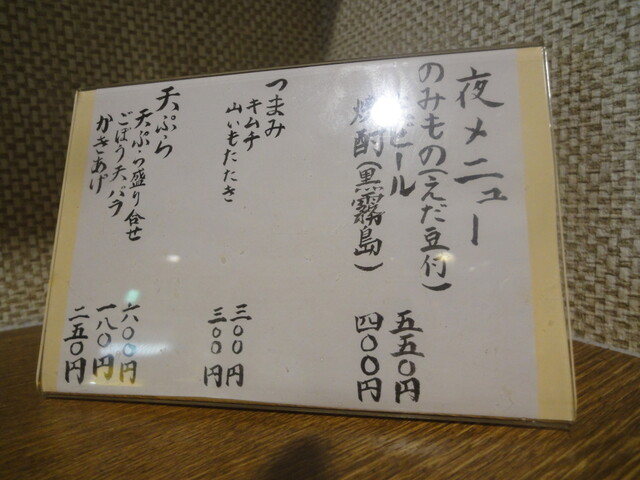 夜メニュー
のみもの(えだ豆付)
ビール 五五〇円
焼酎(黒霧島) 四〇〇円
つまみ
キムチ 三〇〇円
山いもたたき 三〇〇円
天ぷら
天ぷら盛り合せ 六〇〇円
ごぼう天バラ 一八〇円
かきあげ 二五〇円